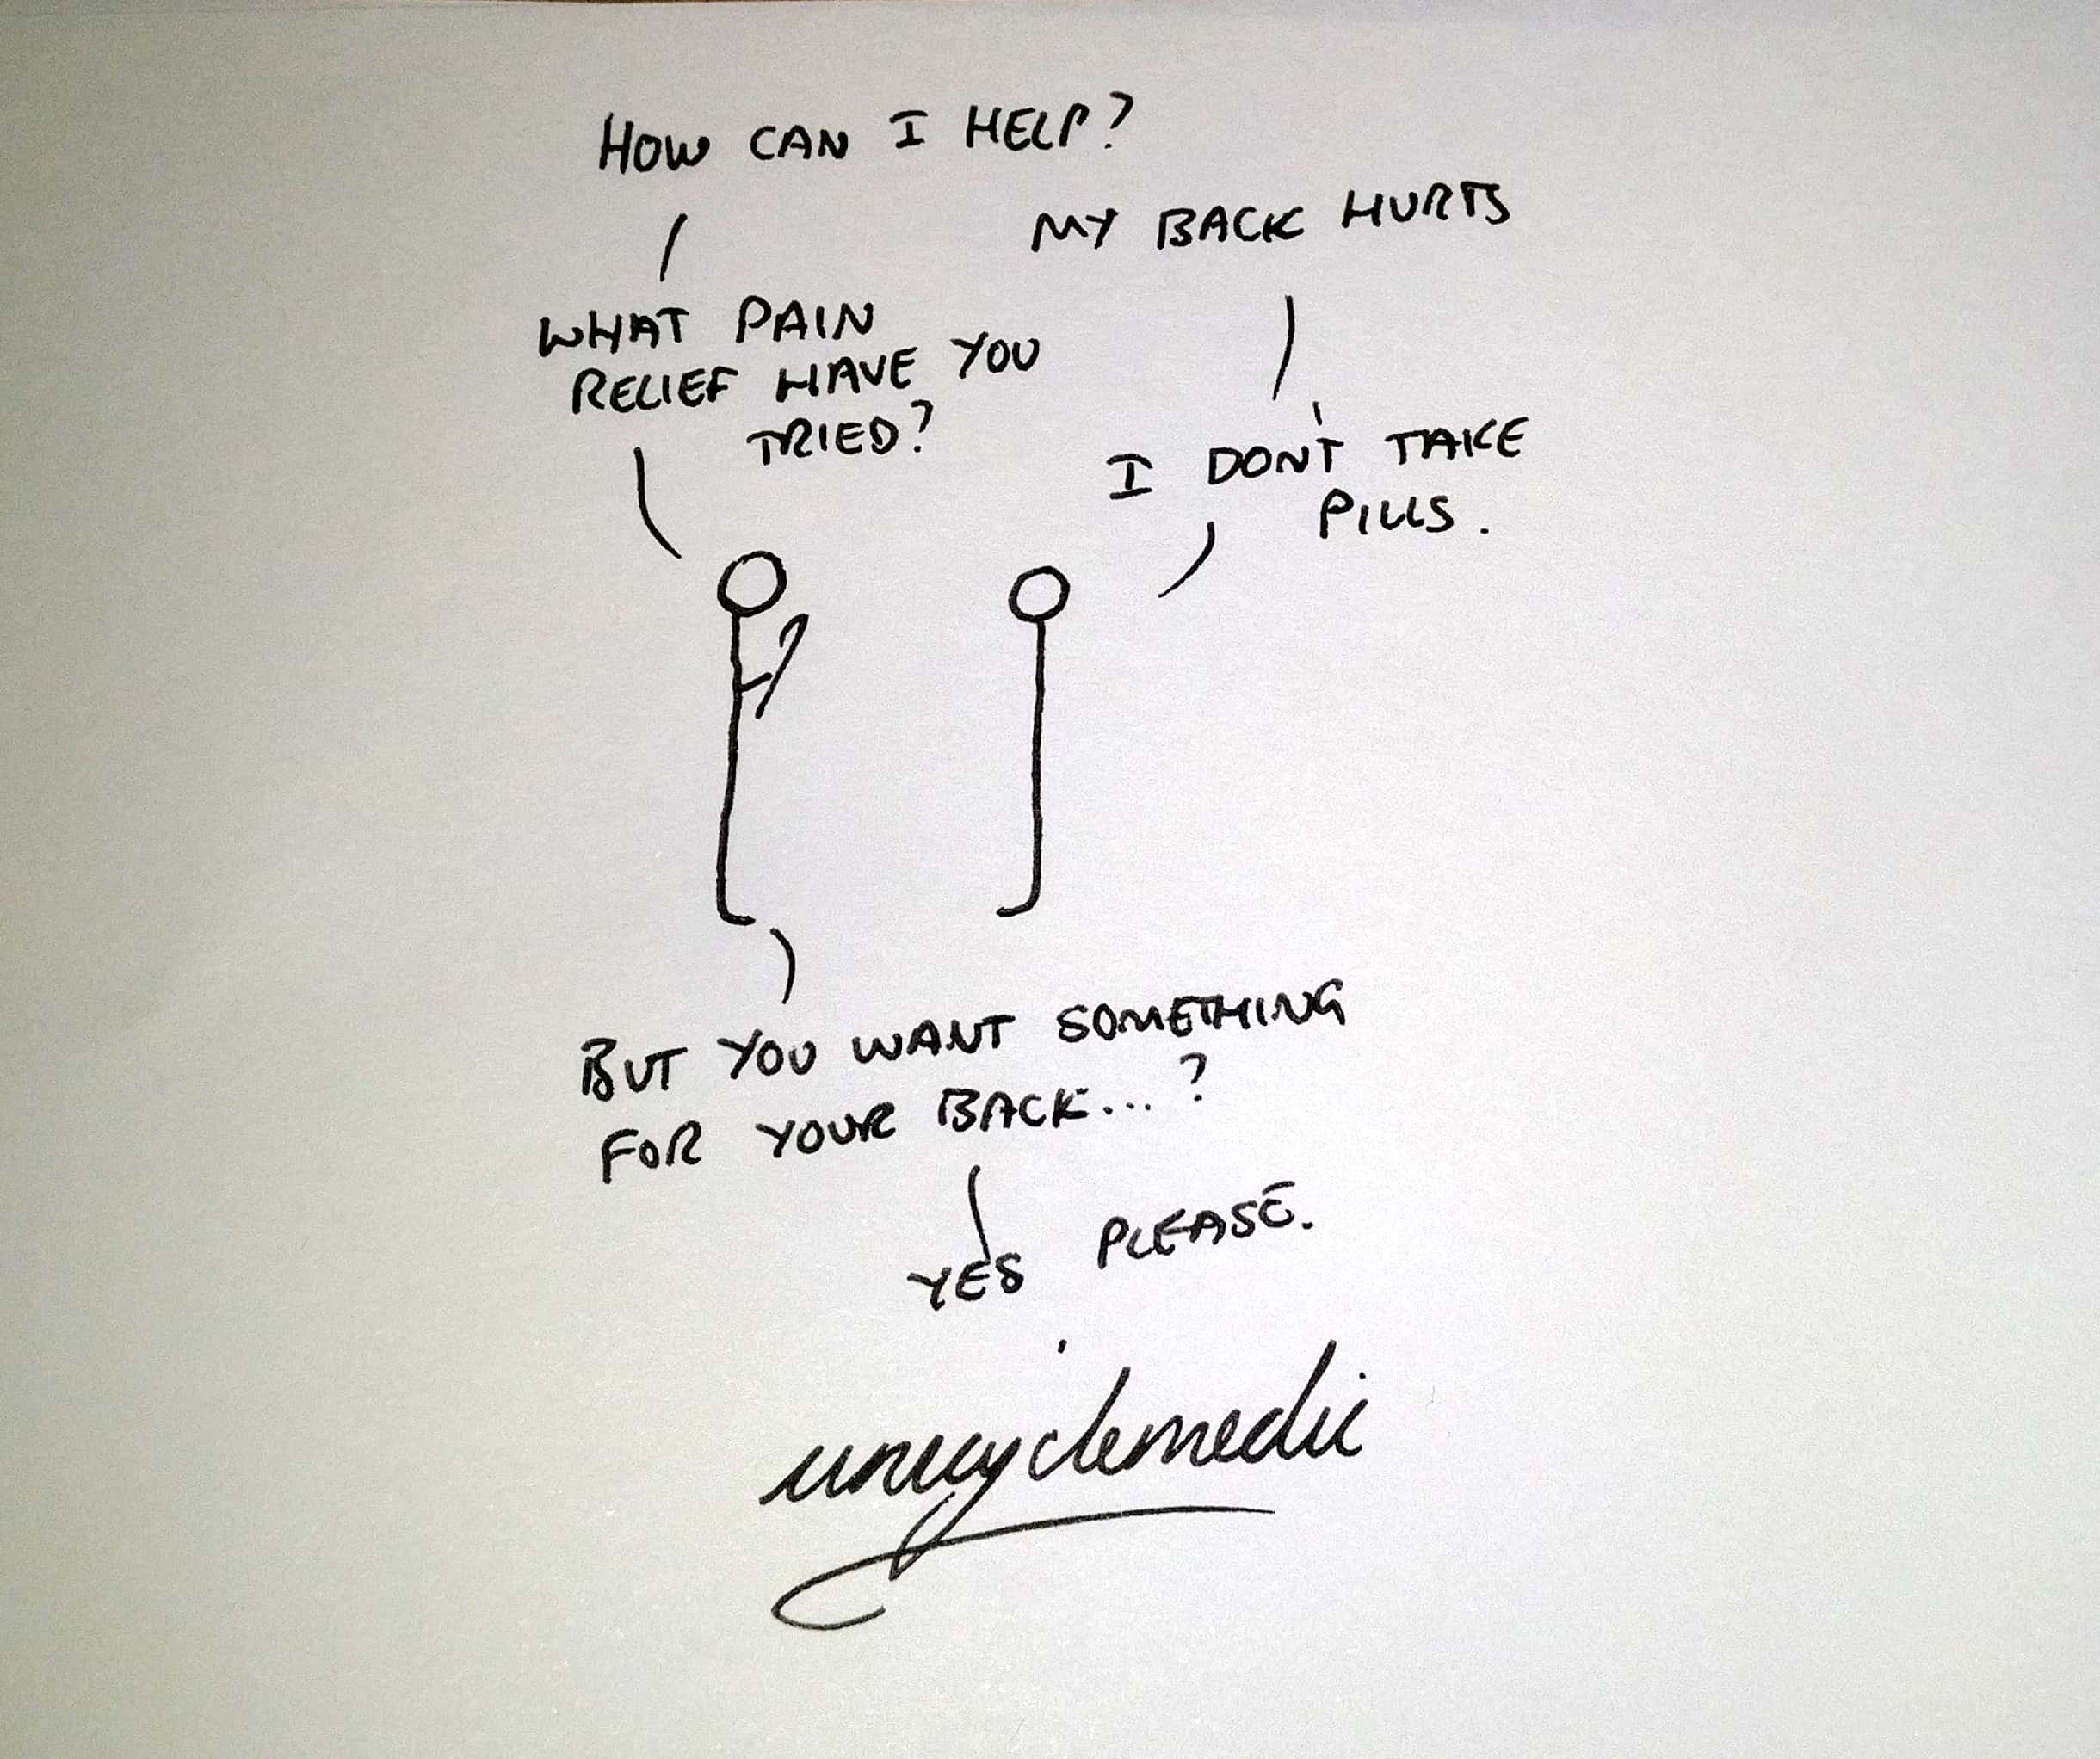 HOW CAN I HELP?
MY BACK HURTS
WHAT PAIN
RELIEF HAVE YOU
TRIED?
I DON'T TAKE
PILLS.
BUT YOU WANT SOMETHING
FOR YOUR BACK...?
YES PLEASE.
unicyclemedic